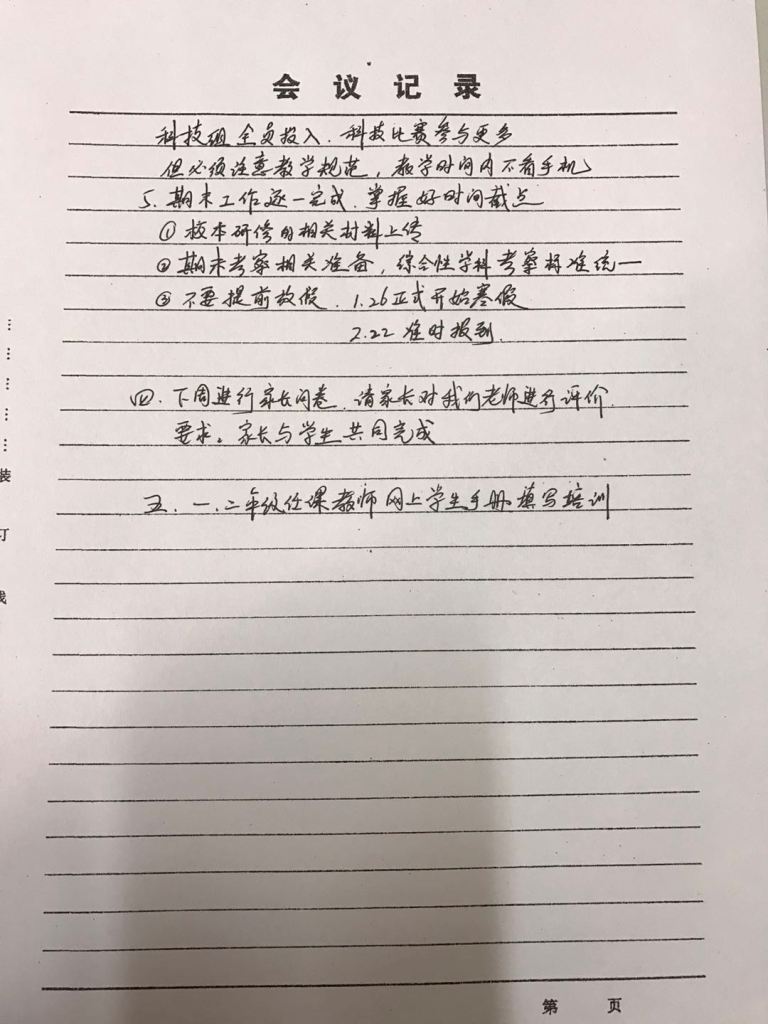 会议记录
科技组全员投入.科技比赛参与更多
但必须注意教学规范,教学时间内不看手机
5.期末工作逐一完成.掌握好时间截点
①校本研修的相关材料上传
②期末考察相关准备,综合性学科考察标准统一
③不要提前放假.1.26正式开始寒假
2.22准时报到.
四.下周进行家长问卷.请家长对我们老师进行评价.
要求。家长与学生共同完成
五.一.二年级任课教师网上学生手册填写培训
装
订
线
第 页